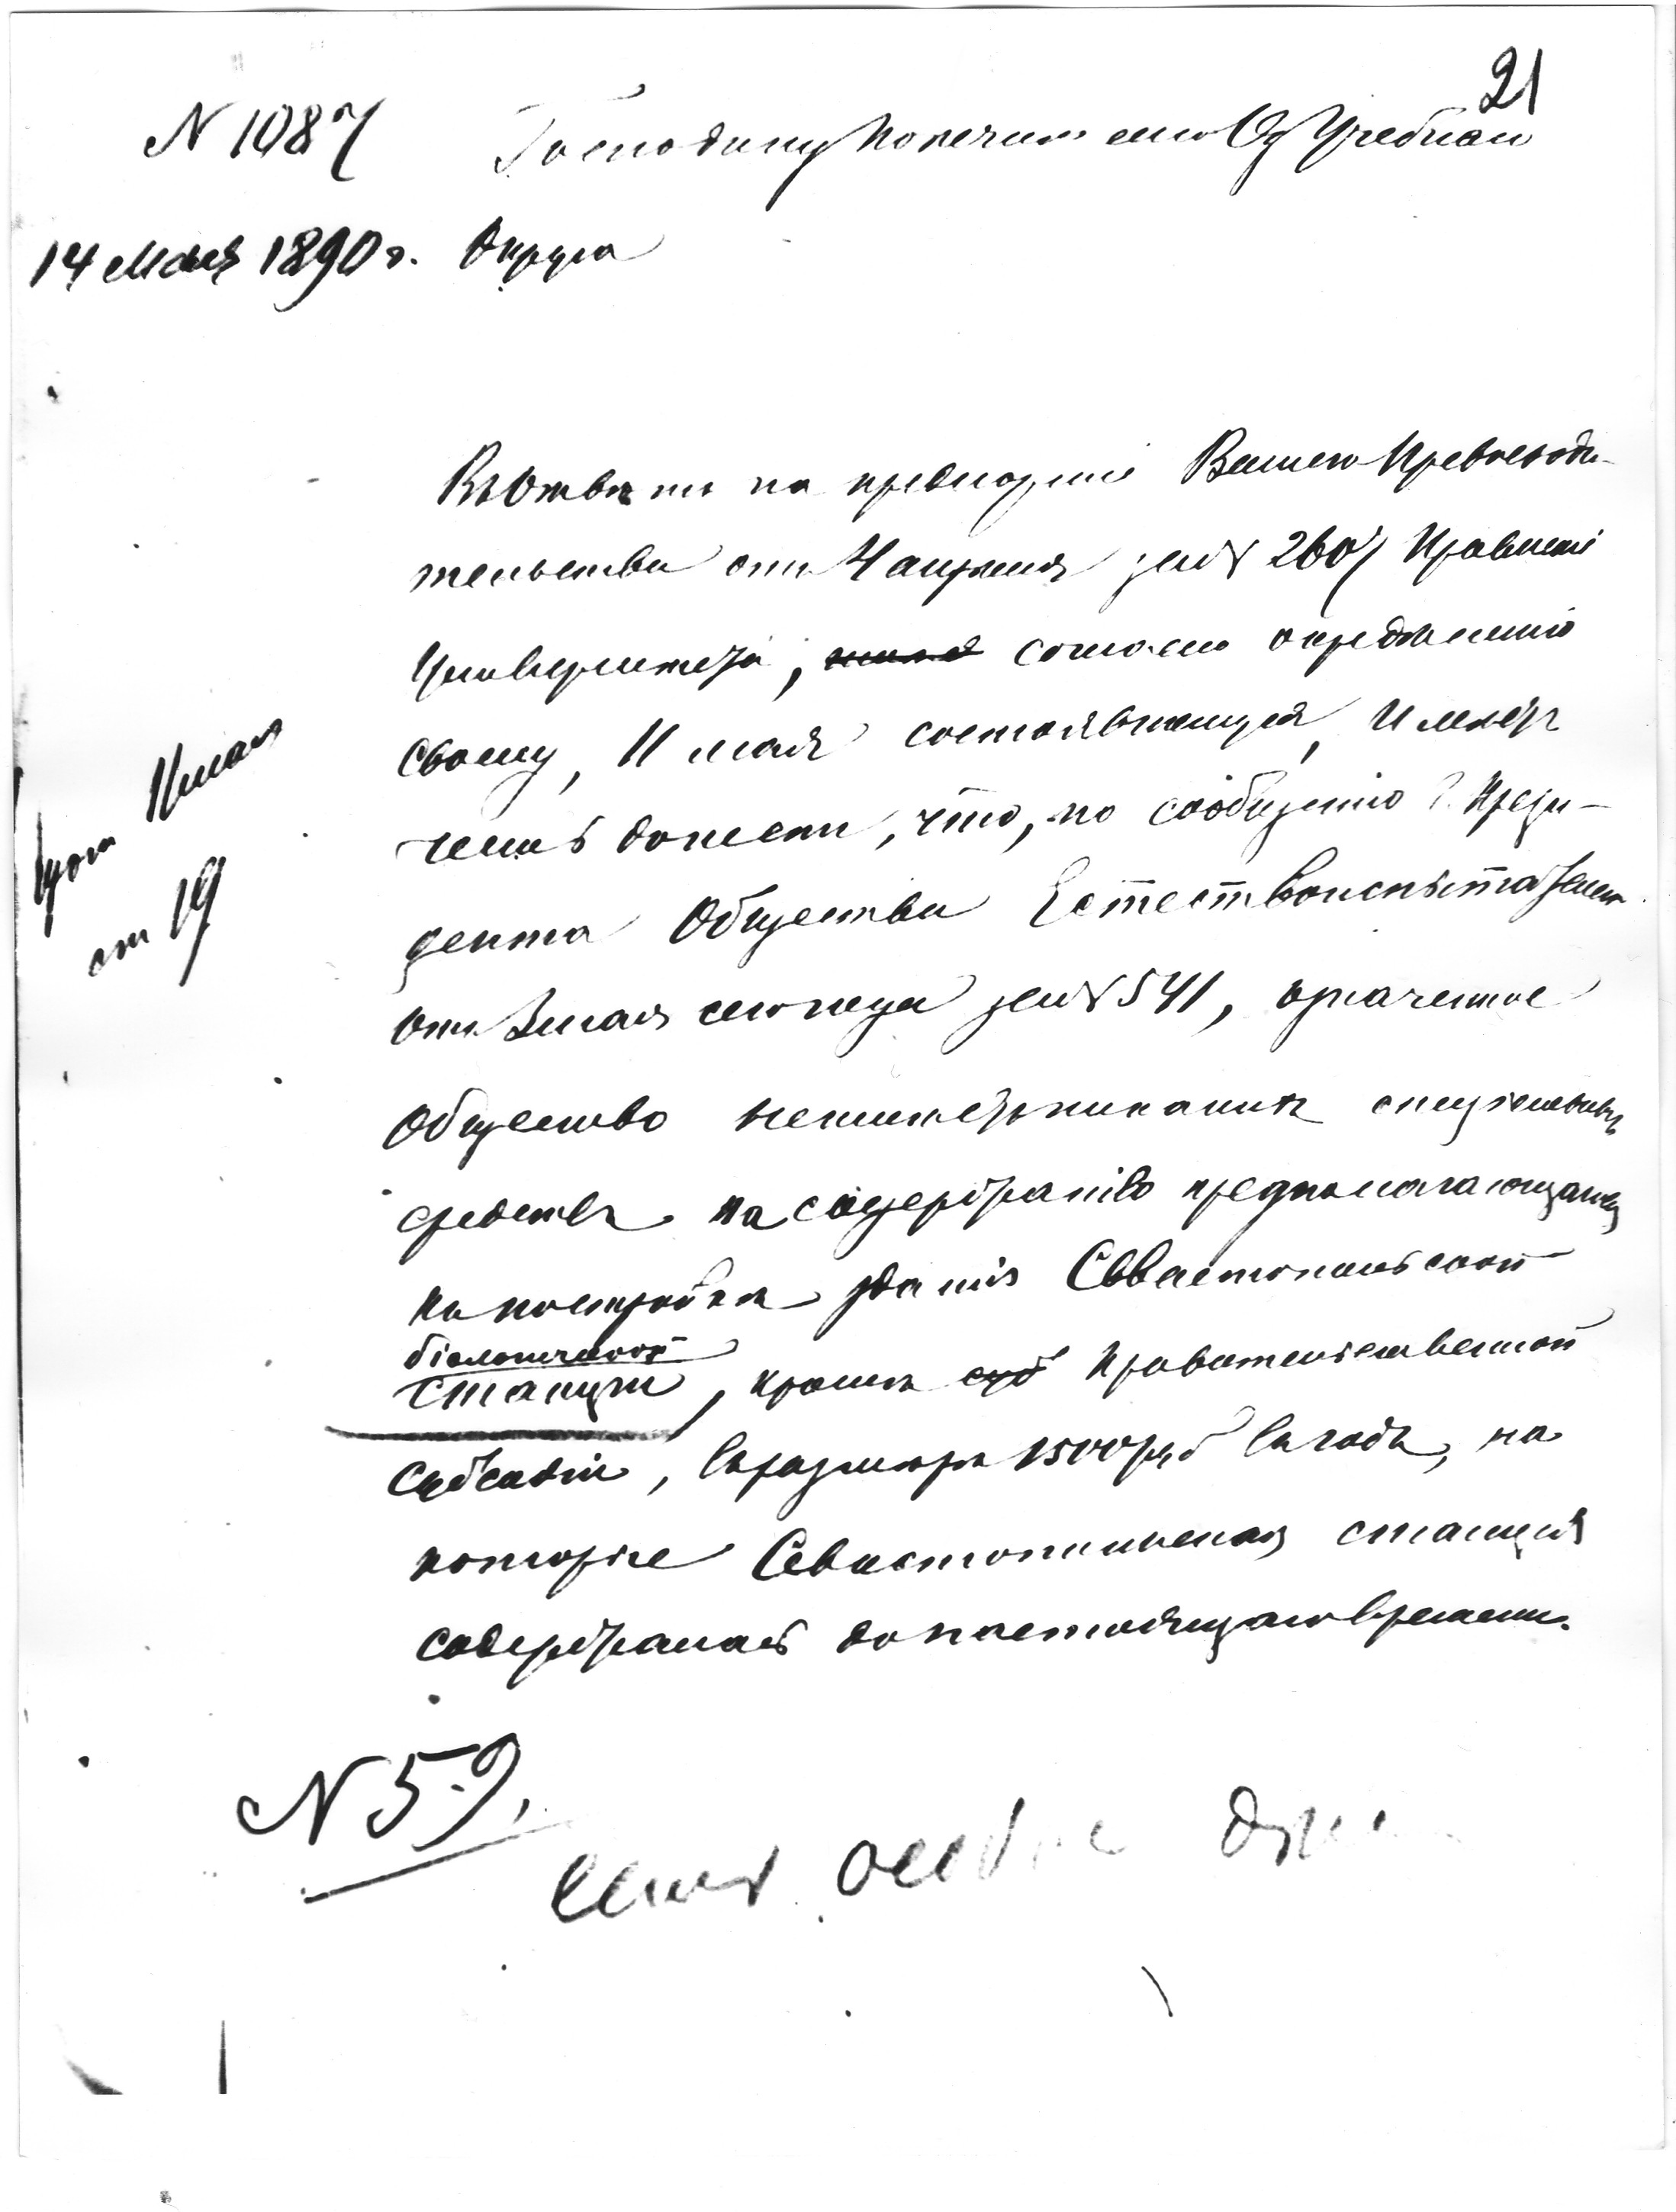 21
N 1087 Господину Попечителю Од Учебнаго
14 Мая 1890 г. Округа
Въ отвѣтъ на предложеніе Вашего Превосходи-
тельства отъ 4 апрѣля за N 2607 Правленіе
Университета, согласно опредѣленію
своему, 11 мая состоявшемуся, имѣетъ
честь донести, что, по сообщенію г. Прези-
дента Общества Естествоиспытателей
отъ 3 мая сего года за N 541, означенное
Общество не имѣетъ никакихъ спеціальныхъ
средствъ на содержаніе предполагающагося
къ постройкѣ зданія Севастопольской
біологической
станціи, кромѣ суб Правительственной
субсидіи, въ размѣрѣ 1500 руб въ годъ, на
которые Севастопольская станція
содержалась до настоящаго времени.
11 мая
ст 19
N 59.